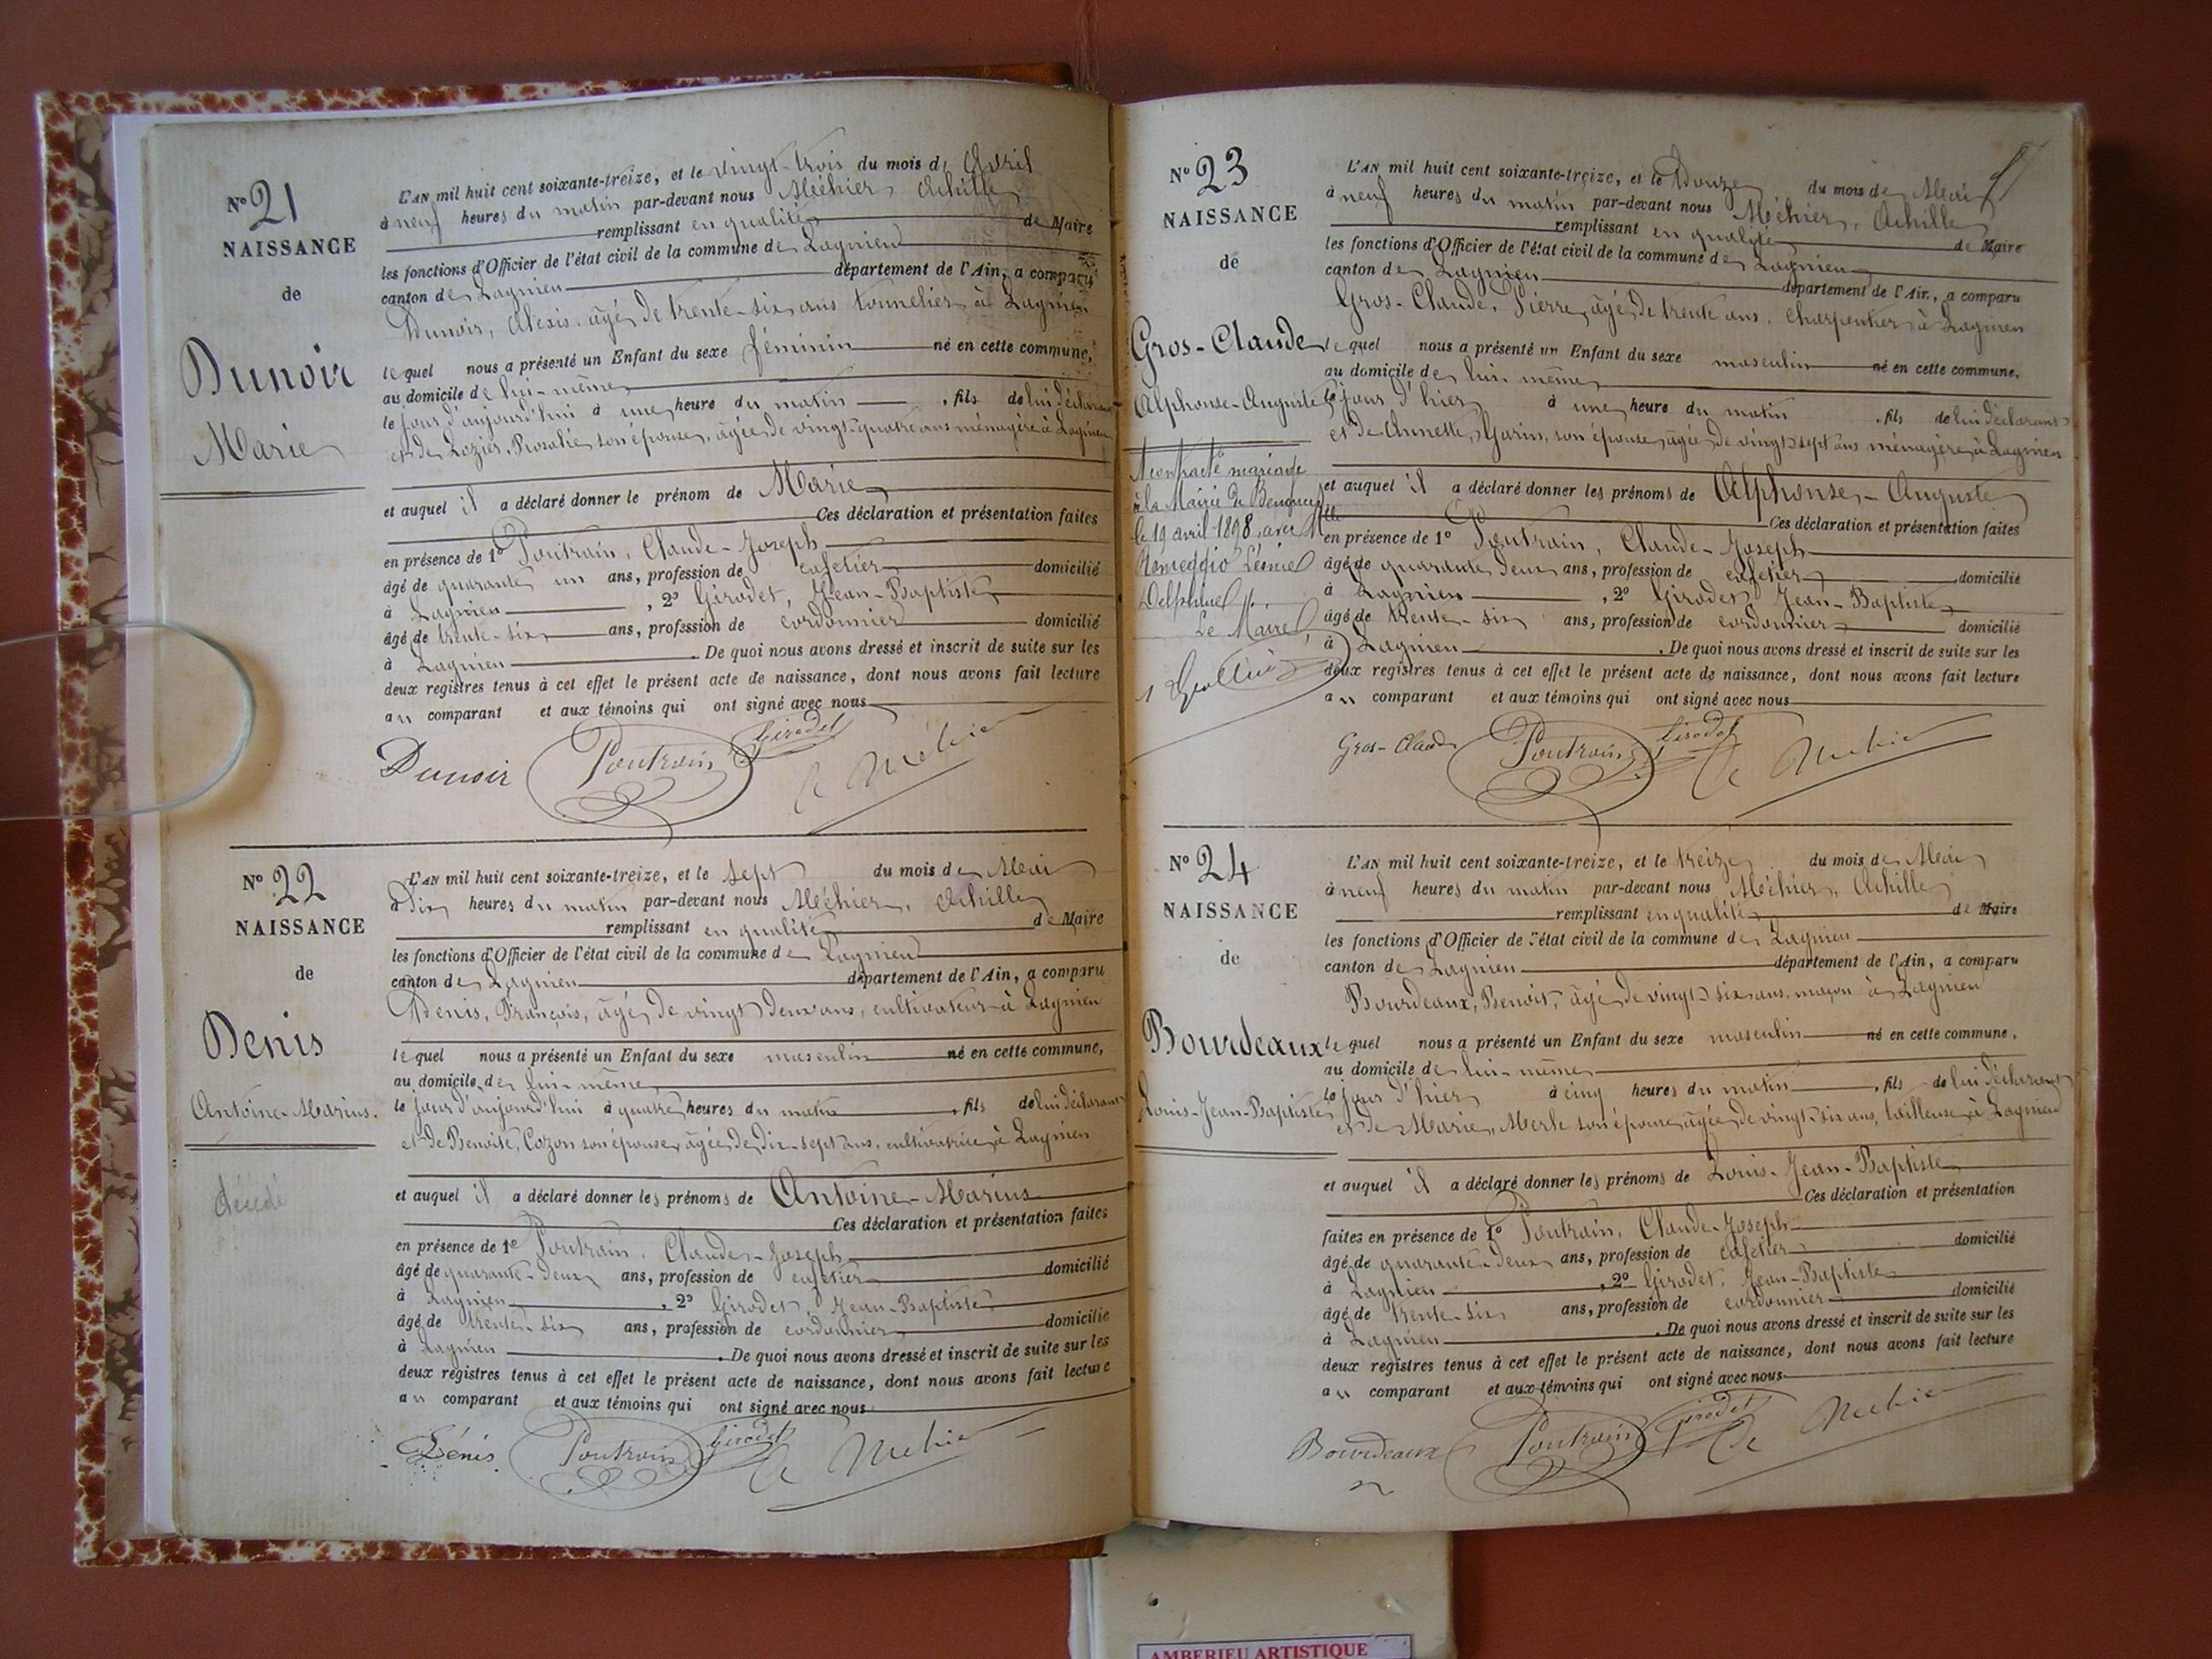 N° 21
NAISSANCE
de
Dunoir
Marie
L'AN mil huit cent soixante-treize, et le vingt-trois du mois de Avril
à neuf heures du matin par-devant nous Méhier, Achille
remplissant en qualité de Maire
les fonctions d'Officier de l'état civil de la commune de Lagnieu
canton de Lagnieu département de l'Ain, a comparu
Dunoir, Alexis, âgé de trente-six ans tonnelier à Lagnieu
lequel nous a présenté un Enfant du sexe féminin né en cette commune,
au domicile de lui-même
le jour d'aujourd'hui à une heure du matin, fils de lui déclarant
et de Lozier, Rosalie son épouse, âgée de vingt-quatre ans ménagère à Lagnieu
et auquel il a déclaré donner le prénom de Marie
Ces déclaration et présentation faites
en présence de 1° Poutrain, Claude-Joseph
âgé de quarante un ans, profession de cafetier domicilié
à Lagnieu, 2° Girodet, Jean-Baptiste
âgé de trente-six ans, profession de cordonnier domicilié
à Lagnieu. De quoi nous avons dressé et inscrit de suite sur les
deux registres tenus à cet effet le présent acte de naissance, dont nous avons fait lecture
au comparant et aux témoins qui ont signé avec nous
Dunoir Poutrain Girodet A Méhier
N° 22
NAISSANCE
de
Denis
Antoine-Marius.
décédé
L'AN mil huit cent soixante-treize, et le sept du mois de Mai
à dix heures du matin par-devant nous Méhier, Achille
remplissant en qualité de Maire
les fonctions d'Officier de l'état civil de la commune de Lagnieu
canton de Lagnieu département de l'Ain, a comparu
Denis, François, âgé de vingt deux ans, cultivateur à Lagnieu
lequel nous a présenté un Enfant du sexe masculin né en cette commune,
au domicile de lui-même
le jour d'aujourd'hui à quatre heures du matin, fils de lui déclarant
et de Benoite, Cozon son épouse, âgée de dix-sept ans, cultivatrice à Lagnieu
et auquel il a déclaré donner les prénoms de Antoine-Marius
Ces déclaration et présentation faites
en présence de 1° Poutrain, Claude-Joseph
âgé de quarante-deux ans, profession de cafetier domicilié
à Lagnieu, 2° Girodet, Jean-Baptiste
âgé de trente-six ans, profession de cordonnier domicilié
à Lagnieu. De quoi nous avons dressé et inscrit de suite sur les
deux registres tenus à cet effet le présent acte de naissance, dont nous avons fait lecture
au comparant et aux témoins qui ont signé avec nous
Dénis Poutrain Girodet A Mehier
N° 23
NAISSANCE
de
Gros-Claude
Alphonse-Auguste
A contracté mariage
à la Mairie de
le 19 avril 1898, avec Mlle
Delphine
Le Maire,
L'AN mil huit cent soixante-treize, et le Douze du mois de Mai
à neuf heures du matin par-devant nous Méhier, Achille
remplissant en qualité de Maire
les fonctions d'Officier de l'état civil de la commune de Lagnieu
canton de Lagnieu département de l'Ain, a comparu
Gros-Claude, Pierre, âgé de trente ans, charpentier à Lagnieu
lequel nous a présenté un Enfant du sexe masculin né en cette commune.
au domicile de lui-même
le jour d'hier à une heure du matin, fils de lui déclarant
et de Annette, Garin, son épouse, âgée de vingt-sept ans ménagère, à Lagnieu
et auquel il a déclaré donner les prénoms de Alphonse-Auguste
Ces déclaration et présentation faites
en présence de 1° Poutrain, Claude-Joseph
âgé de quarante deux ans, profession de cafetier, domicilié
à Lagnieu, 2° Girodet, Jean-Baptiste
âgé de trente-six ans, profession de cordonnier domicilié
à Lagnieu. De quoi nous avons dressé et inscrit de suite sur les
deux registres tenus à cet effet le présent acte de naissance, dont nous avons fait lecture
au comparant et aux témoins qui ont signé avec nous
Gros-Claude Poutrain Girodet A Mehier
N° 24
NAISSANCE
de
Bourdeaux
Louis-Jean-Baptiste
L'AN mil huit cent soixante-treize, et le treize du mois de Mai
à neuf heures du matin par-devant nous Méhier, Achille
remplissant en qualité de Maire
les fonctions d'Officier de l'état civil de la commune de Lagnieu
canton de Lagnieu département de l'Ain, a comparu
Bourdeaux, Benoit, âgé de vingt-six ans, maçon à Lagnieu
lequel nous a présenté un Enfant du sexe masculin né en cette commune,
au domicile de lui-même
le jour d'hier à cinq heures du matin, fils de lui déclarant
et de Marie, Merle son épouse, âgée de vingt-six ans, tailleuse à Lagnieu
et auquel il a déclaré donner les prénoms de Louis-Jean-Baptiste
Ces déclaration et présentation
faites en présence de 1° Poutrain, Claude-Joseph
âgé de quarante-deux ans, profession de cafetier domicilié
à Lagnieu, 2° Girodet, Jean-Baptiste
âgé de trente-six ans, profession de cordonnier domicilié
à Lagnieu. De quoi nous avons dressé et inscrit de suite sur les
deux registres tenus à cet effet le présent acte de naissance, dont nous avons fait lecture
au comparant et aux témoins qui ont signé avec nous
Bourdeaux Poutrain Girodet A Mehier
AMBERIEU ARTISTIQUE